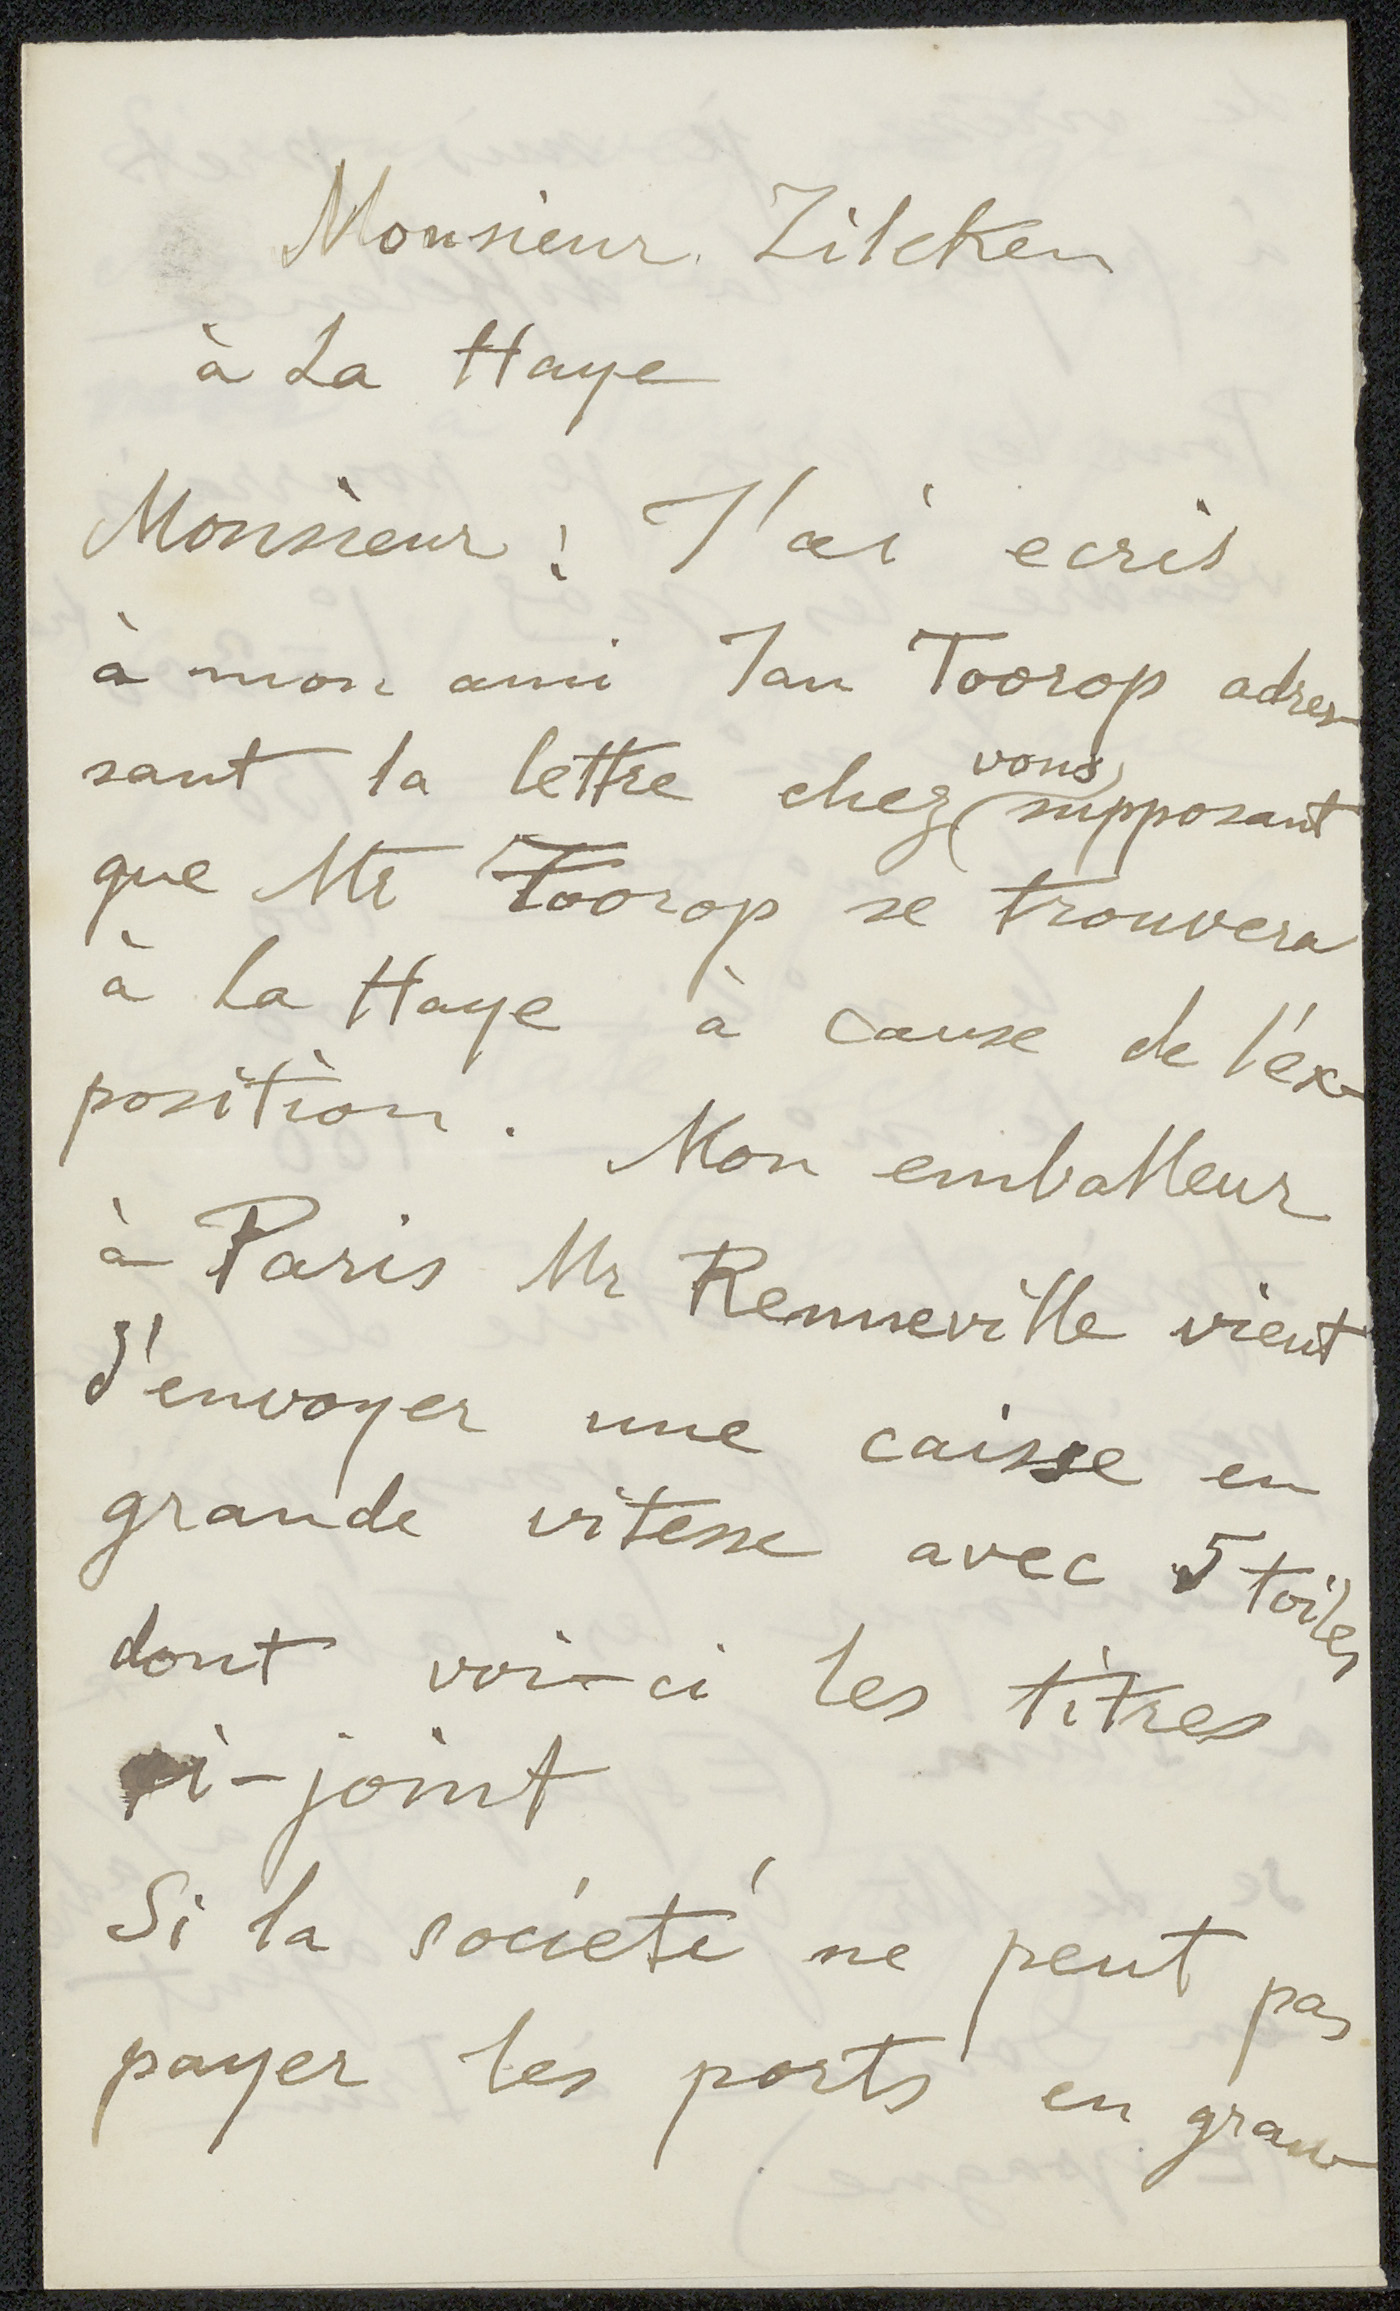 Monsieur Zilcken
à La Haye
Monsieur! J'ai ecris
à mon ami Jan Toorop adres-
sant la lettre chez vous supposant
que Mr Toorop se trouvera
à La Haye à cause de l'ex-
position. Mon emballeur
à Paris Mr Renneville vient
d'envoyer une caisse en
grande vitesse avec 5 toiles
dont voi-ci les titres
ci-joint
Si la société ne peut pas
payer les ports en gran-